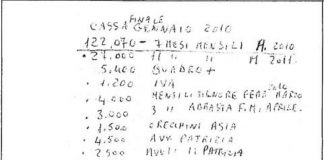 FINALE
CASSA GENNAIO 2010
122,070 - 7 MESI MENSILI A. 2010
• 27.000 11 " " M 2011.
5.400 QUADRO +
• 1.200 IVA
• 4.000 MENSILI SIGNORE FEBB MARZO 2010
• 3.000 3 " AGRASIA F.M. APRILE.
• 1.500 ORECHINI ASIA
• 4.500 AVV PATRIZIA
• 2.500 PATRIZIA